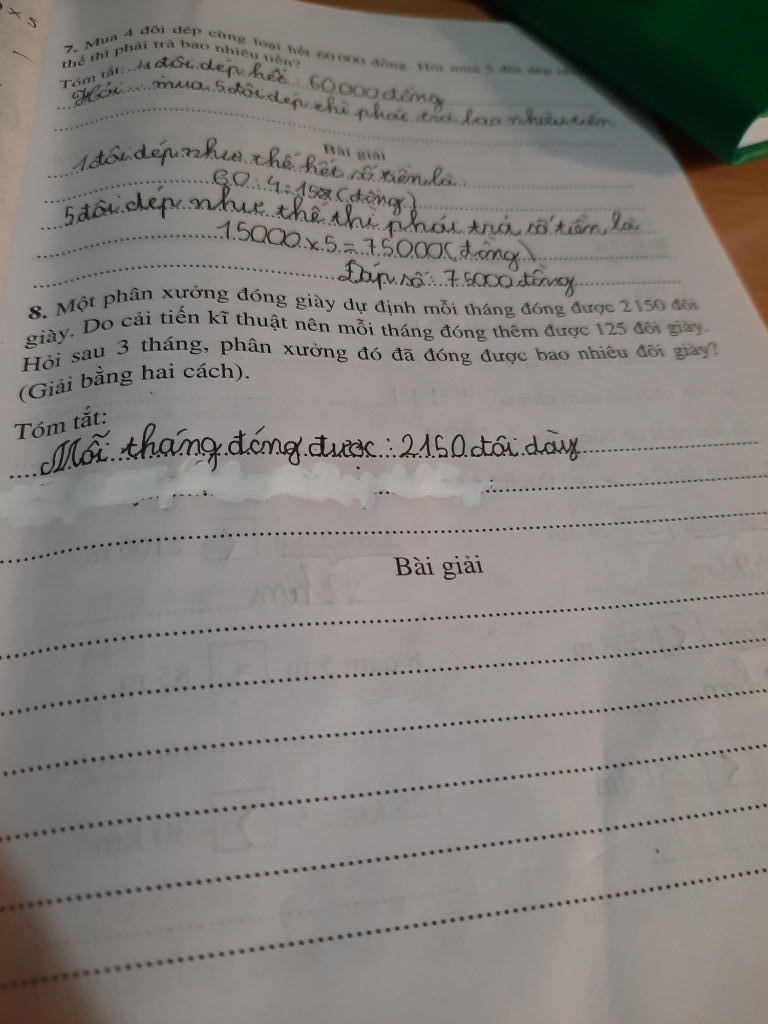 × 5
7. Mua 4 đôi dép cùng loại hết 60 000 đồng. Hỏi mua 5 đôi dép
thế thì phải trả bao nhiêu tiền?
Tóm tắt: 4 đôi dép hết: 60.000 đồng
Hỏi mua 5 đôi dép thì phải trả bao nhiêu tiền
Bài giải
1 đôi dép như thế hết số tiền là
60 : 4 = 15 (đồng)
5 đôi dép như thế thì phải trả số tiền là
15000 x 5 = 75000 (đồng)
Đáp số: 75000 đồng
8. Một phân xưởng đóng giày dự định mỗi tháng đóng được 2150 đôi
giày. Do cải tiến kĩ thuật nên mỗi tháng đóng thêm được 125 đôi giày.
Hỏi sau 3 tháng, phân xưởng đó đã đóng được bao nhiêu đôi giày?
(Giải bằng hai cách).
Tóm tắt:
Mỗi tháng đóng được : 2150 đôi dày
:
Bài giải